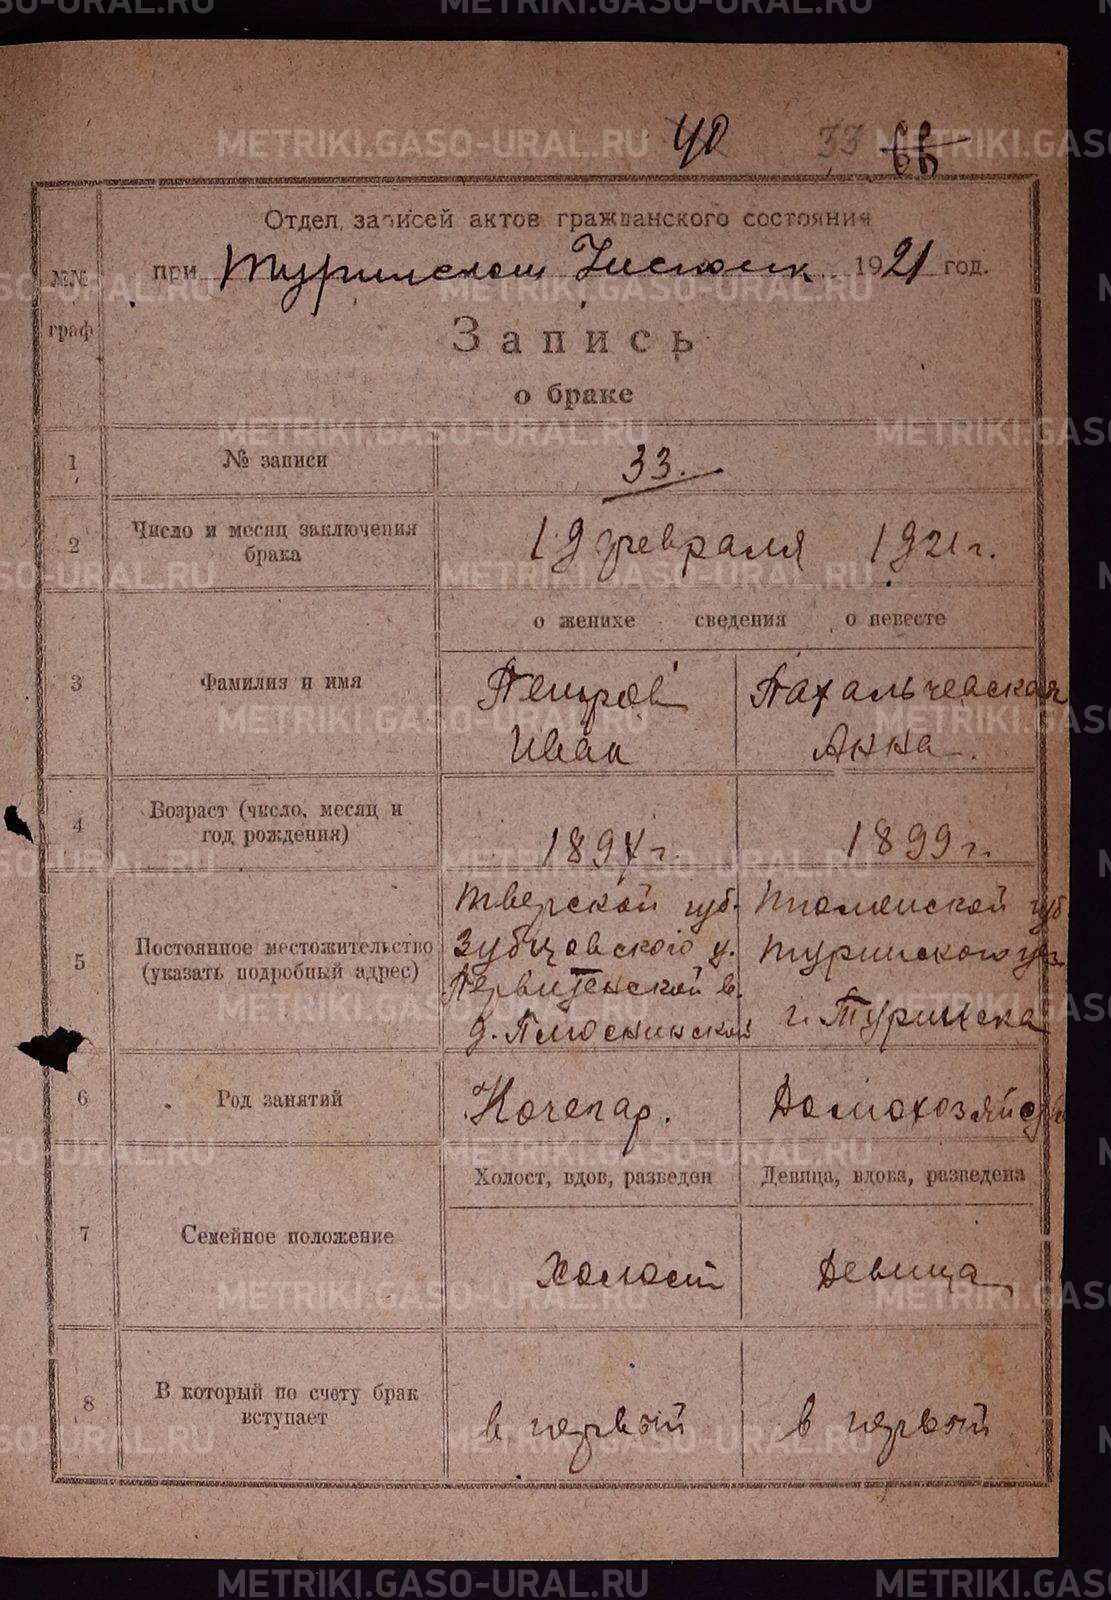 METRIKI.GASO-URAL.RU
40 33 66
Отдел записей актов гражданского состояния
№№ граф
при Туринском Исполк 1921 год.
Запись
о браке
1 № записи 33.
2 Число и месяц заключения брака 19 февраля 1921 г.
о женихе сведения о невесте
3 Фамилия и имя
Петров Пахальчевская
Иван Анна.
4 Возраст (число, месяц и год рождения) 1897 г. 1899 г.
5 Постоянное местожительство (указать подробный адрес)
Тверской губ. Тюменской губ
Зубцовского у. Туринского уез
Первитенской в. г. Туринска
д. Плоснинской
6 Род занятий Кочегар. Домохозяйств
Холост, вдов, разведен Девица, вдова, разведена
7 Семейное положение Холост Девица
8 В который по счету брак вступает в первый в первый